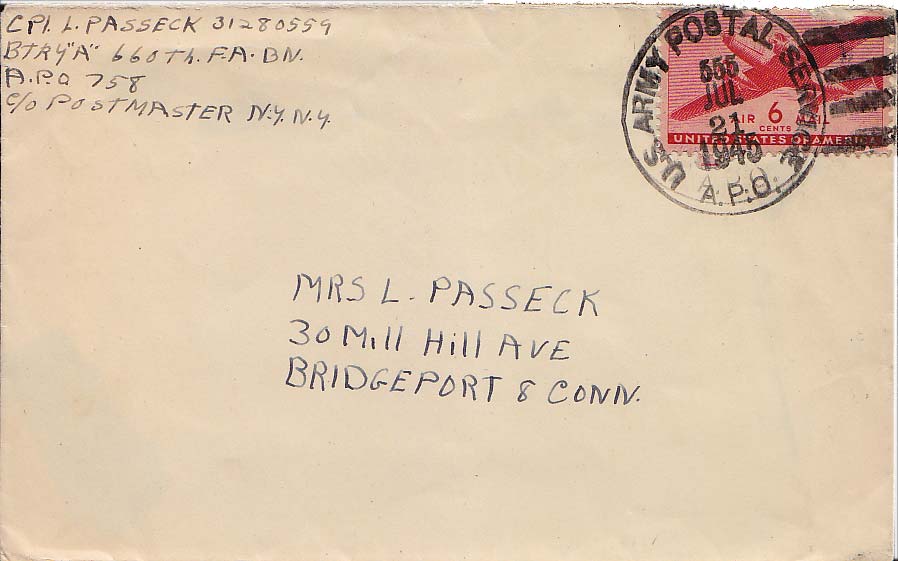 CPL. L. PASSECK 31280559
BTRY "A" 660Th. F.A. BN.
A.P.O 758
C/O POSTMASTER N.Y. N.Y.
U.S. ARMY POSTAL SERVICE
555
JUL
21
1945
A.P.O.
AIR 6 MAIL
CENTS
UNITED STATES OF AMERICA
MRS L. PASSECK
30 Mill Hill AVE
BRIDGEPORT 8 CONN.